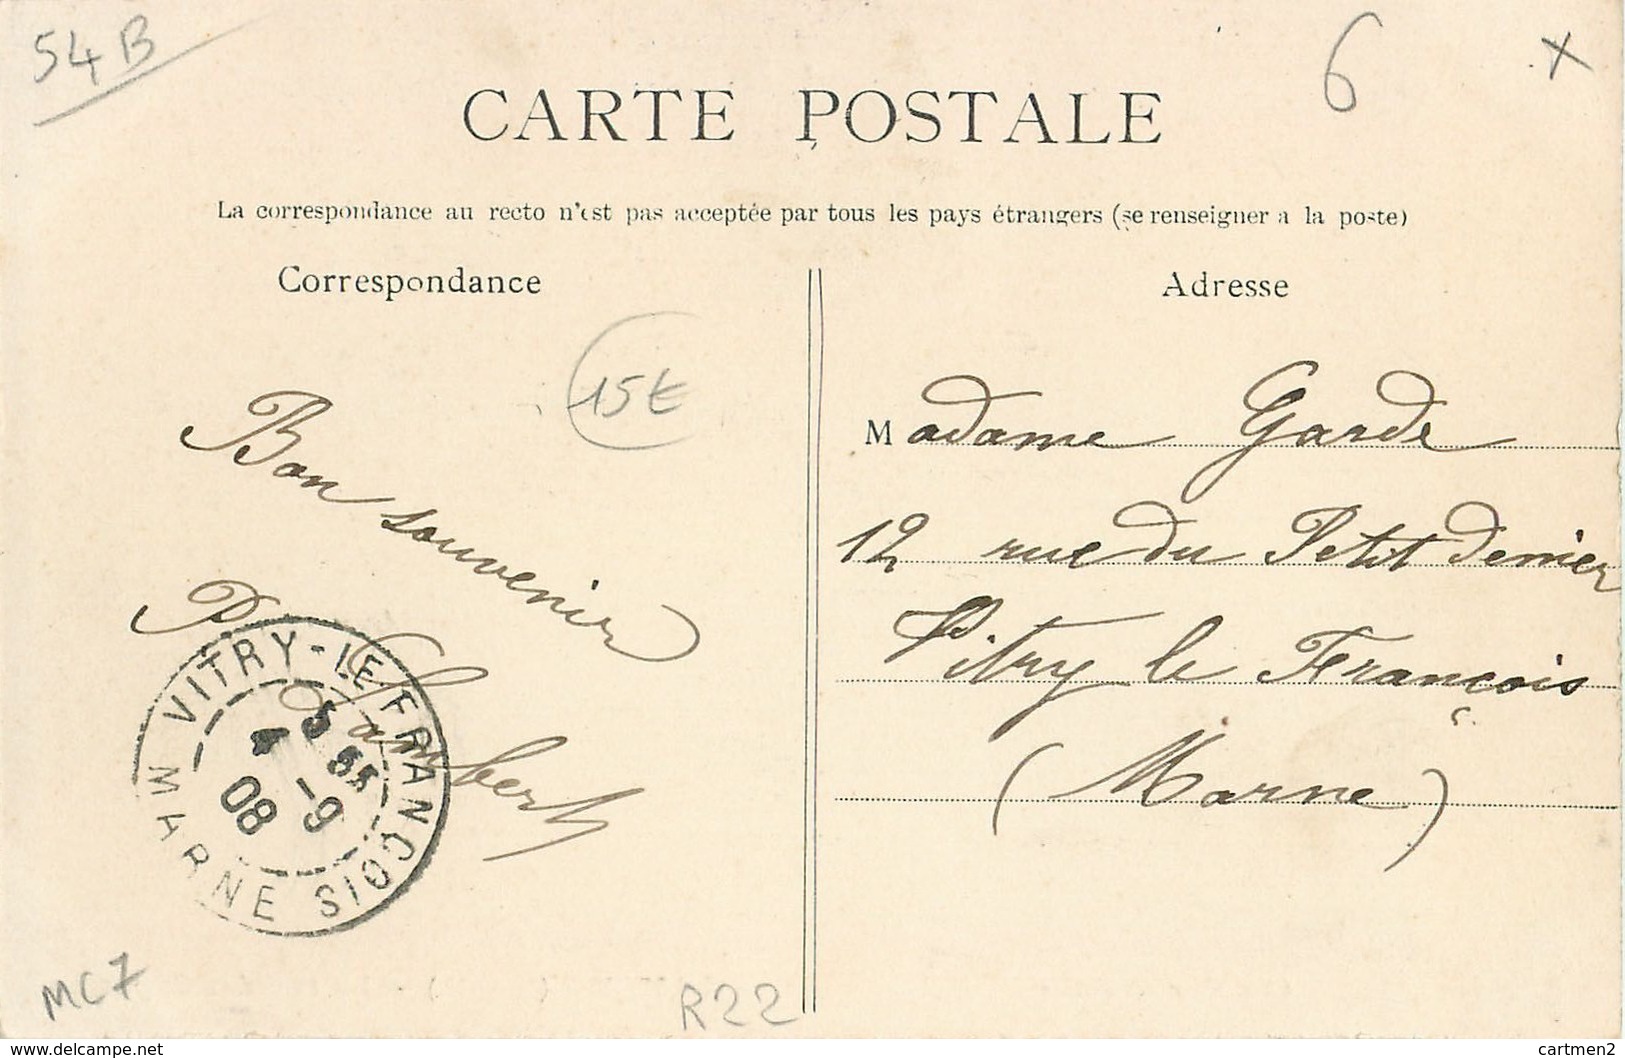 54 B
6
x
CARTE POSTALE
La correspondance au recto n'est pas acceptée par tous les pays étrangers (se renseigner a la poste)
Correspondance
15€
Bon souvenir
P. Lambert
VITRY-LE-FRANÇOIS
5 55
4 -9
08
MARNE
Adresse
Madame Garde
12 rue du Petit Denier
Vitry le François
(Marne)
MC7
R22
www.delcampe.net
cartmen2